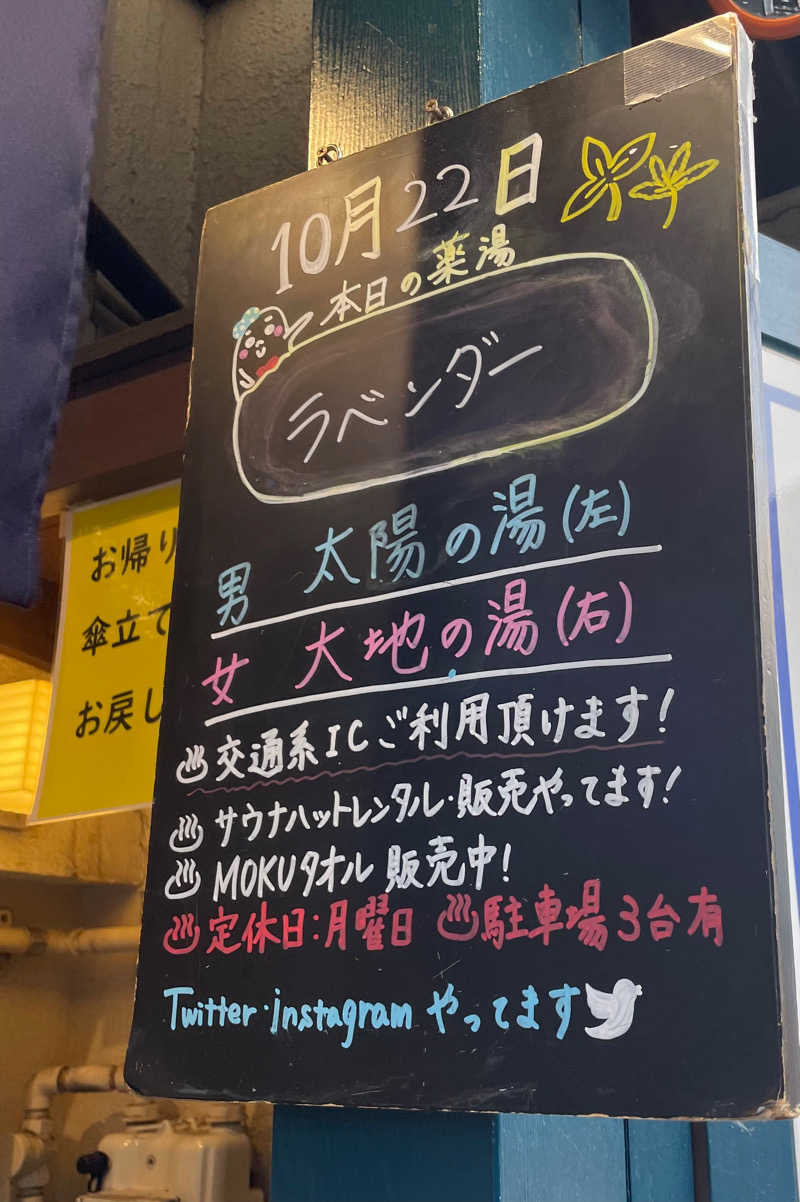 10月22日
本日の薬湯
ラベンダー
男 太陽の湯(左)
女 大地の湯(右)
♨交通系ICご利用頂けます!
♨サウナハットレンタル・販売やってます!
♨MOKUタオル販売中!
♨定休日:月曜日 ♨駐車場3台有
Twitter・instagramやってます
お帰り
傘立て
お戻し